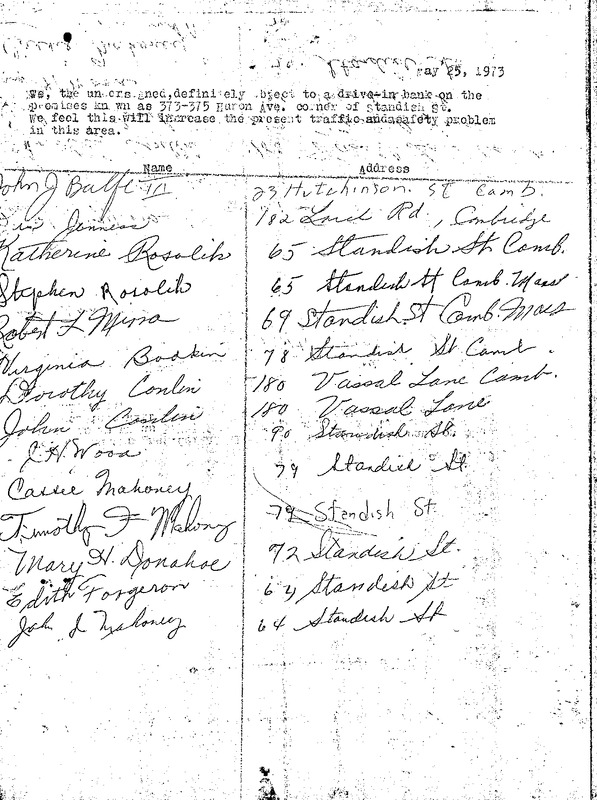 May 25, 1973
We, the undersigned, definitely object to a drive-in bank on the
premises kn wn as 373-375 Huron Ave. corner of Standish St.
We feel this will increase the present traffic andasafety problem
in this area.
Name Address
John J Balfe III 23 Hutchinson St Camb.
Jenness 182 Lord Rd Cambridge
Katherine Rosolik 65 Standish St Camb.
Stephen Rosolik 65 Standish St Camb. Mass
Robert L Mirra 69 Standish St Camb. Mass
Virginia Bodkin 78 Standish St Camb.
Dorothy Conlin 180 Vassal Lane Camb.
John Conlin 180 Vassal Lane
J. H. Wood 90 Standish St.
Cassie Mahoney 79 Standish St.
Timothy F Mahoney 79 Standish St.
Mary H. Donahoe 72 Standish St.
Edith Forgeron 64 Standish St
John J Mahoney 64 Standish St